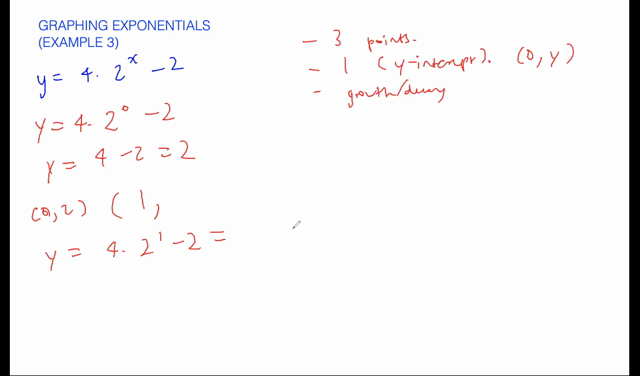 GRAPHING EXPONENTIALS
(EXAMPLE 3)
y = 4 · 2^x - 2
y = 4 · 2^0 - 2
y = 4 - 2 = 2
(0, 2) (1,
y = 4 · 2^1 - 2 =
- 3 points.
- 1 (y-intercept). (0, y)
- growth/decay